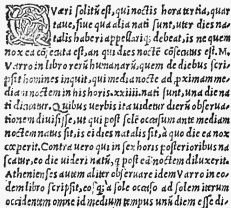 Vari solitũ est, qui noctis hora tertia, quar
taue, siue qua alia nati sunt, uter dies na
talis haberi appellariq; debeat, is ne quem
nox ea cõsecuta est, an qui dies noctẽ cõsecutus est. M.
Varro in libro rerũ humanarũ, quem de diebus scri
psit homines inquit, qui media nocte ad proximam me
dia nocte in his horis .xxiiii. nati sunt, una die na
ti dicũtur. Quibus uerbis ita uidetur dierũ obserua
tionem diuisisse, ut qui post solẽ occasum ante mediam
noctem natus sit, is ei dies natalis sit, a quo die ea nox
cœperit. Contra uero qui in sex horis posterioribus na
scatur, eo die uideri natũ, q̃ post eã noctem diluxerit.
Athenienses autem aliter obseruare idem Varro in eo
dem libro scripsit, eosq; a sole occaso ad solem iterum
occidentem omne id medium tempus unũ diem esse di